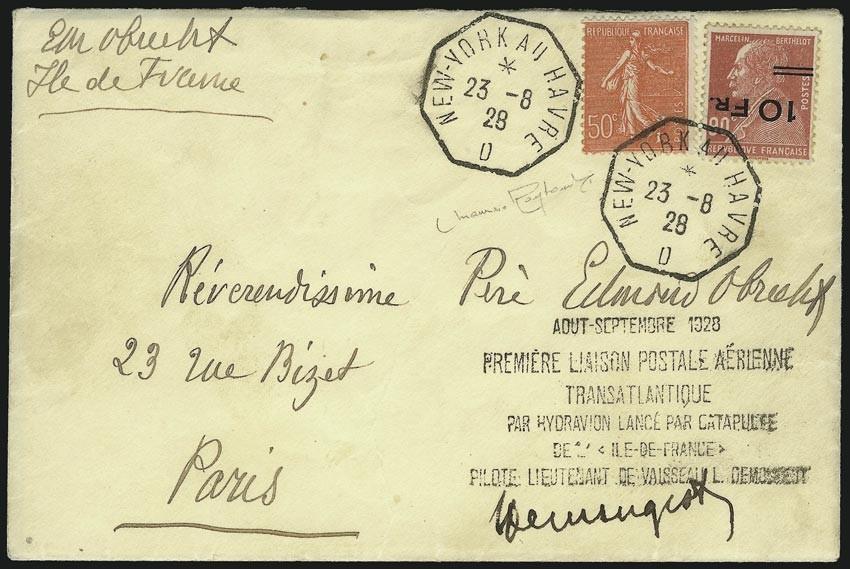 Em Obrecht
Ile de France
NEW-YORK AU HAVRE
*
23 -8
28
D
REPUBLIQUE FRANÇAISE
50c
POSTES
MARCELIN BERTHELOT
POSTES
10 FR.
90c
REPUBLIQUE FRANÇAISE
NEW-YORK AU HAVRE
*
23 -8
28
D
Réverendissime Père Edmond Obrecht
23 rue Bizet
Paris
AOUT-SEPTEMBRE 1928
PREMIÈRE LIAISON POSTALE AÉRIENNE
TRANSATLANTIQUE
PAR HYDRAVION LANCÉ PAR CATAPULTE
DE L' < ILE-DE-FRANCE >
PILOTE: LIEUTENANT DE VAISSEAU L. DEMOUGEOT
Demougeot